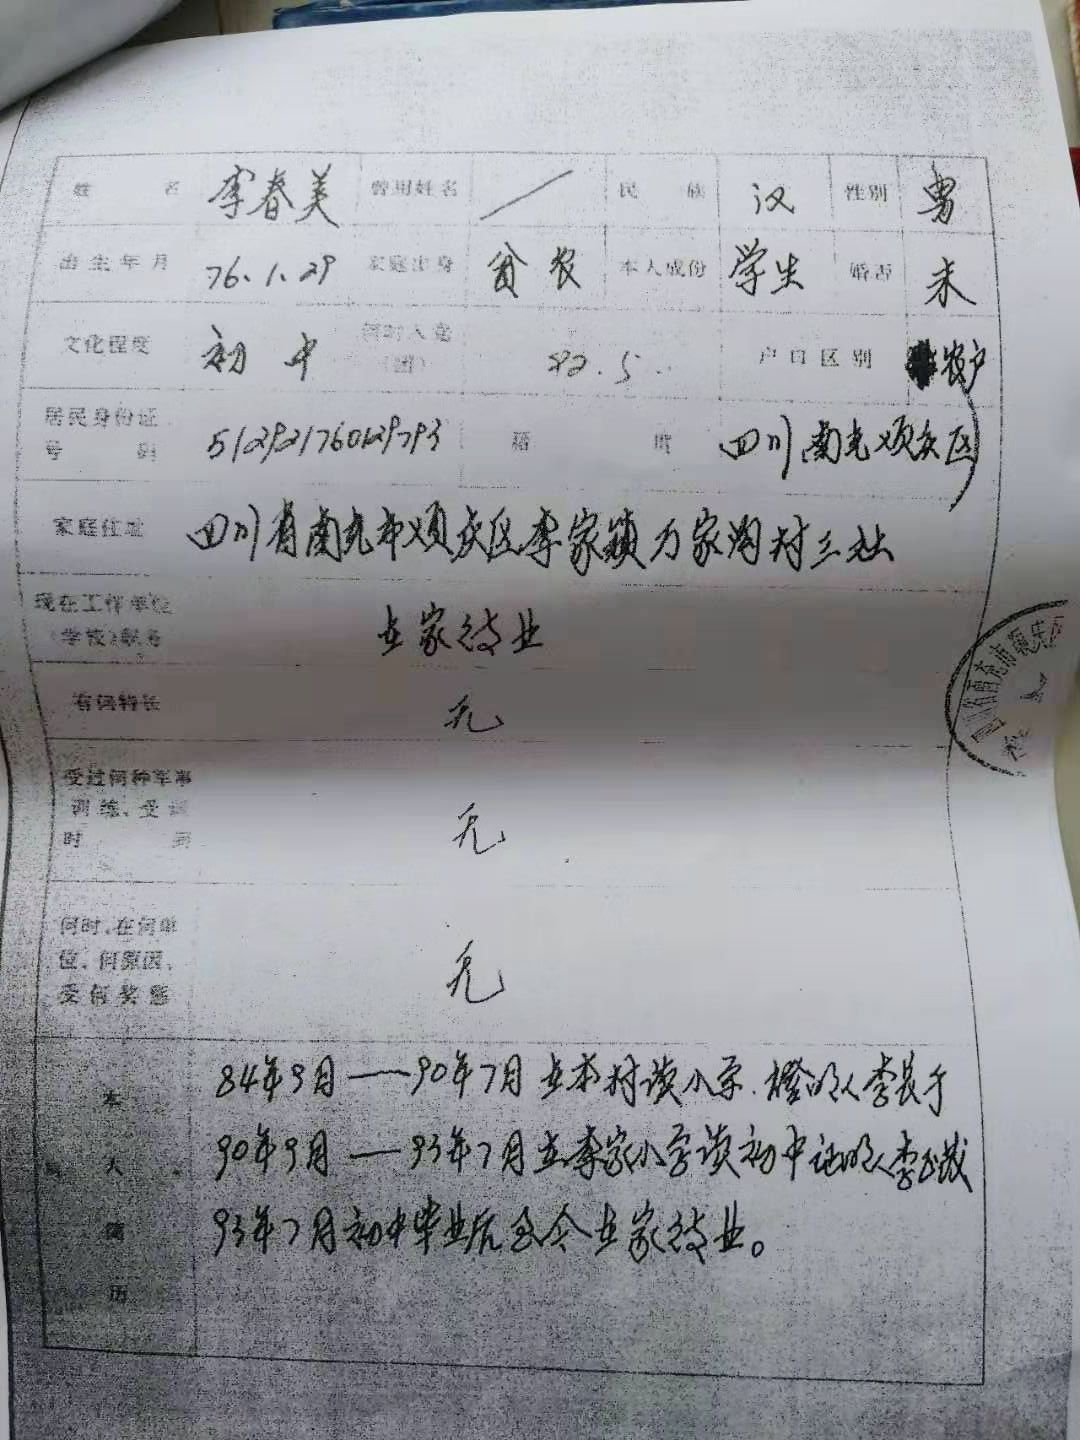 姓名 李春美 曾用姓名 / 民族 汉 性别 男
出生年月 76.1.29 家庭出身 贫农 本人成份 学生 婚否 未
文化程度 初中 何时入党(团) 92.5. 户口区别 农户
居民身份证号码 512921760129793 籍贯 四川南充顺庆区
家庭住址 四川省南充市顺庆区李家镇万家沟村三社
现在工作单位(学校)职务 在家待业
有何特长 无
受过何种军事训练、受训时间 无
何时、在何单位、何原因、受何奖惩 无
本人简历
84年9月——90年7月在本村读小学.证明人李长于
90年9月——93年7月在李家小学读初中证明人李
93年7月初中毕业后至今在家待业。
四川省南充市顺庆区